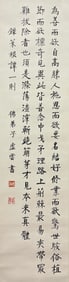 為善而欲自高勝人施恩而欲要名結好修業而欲驚世駭俗植
節而欲標異見奇此皆是善念中戈矛理路上荊棘最易夾帶最
難拔除者也須是滌盡渣滓斬絕萌芽才見本來真體
錄菜根譚一則 佛弟子虛雲書